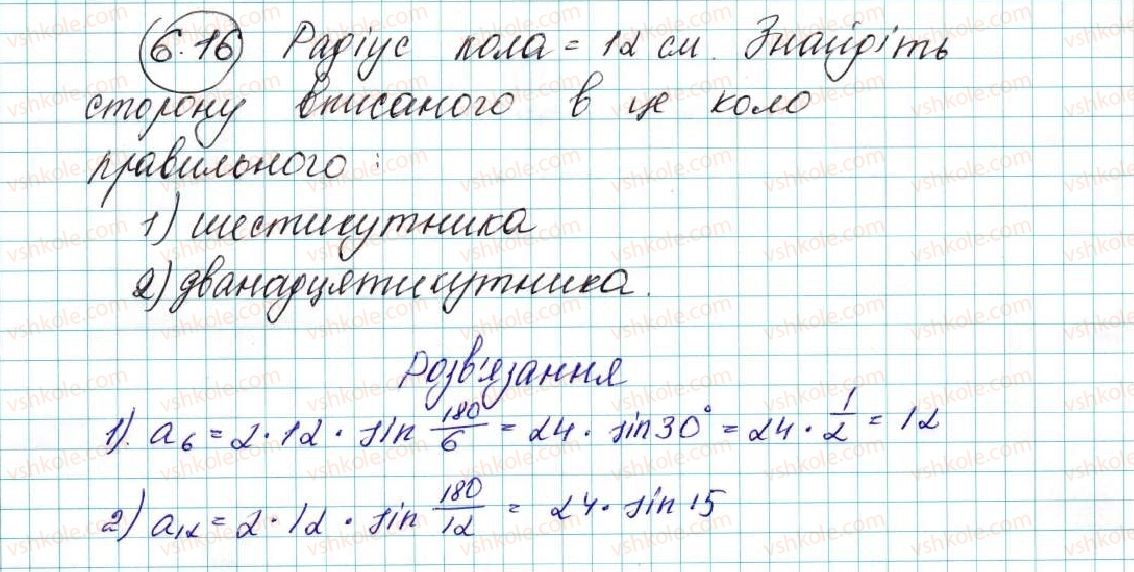 6.16 Радіус кола = 12 см. Знайдіть
сторону вписаного в це коло
правильного:
1) шестикутника
2) дванадцятикутника.
Розв'язання
1). a₆ = 2 · 12 · sin 180/6 = 24 · sin 30° = 24 · 1/2 = 12
2) a₁₂ = 2 · 12 · sin 180/12 = 24 · sin 15